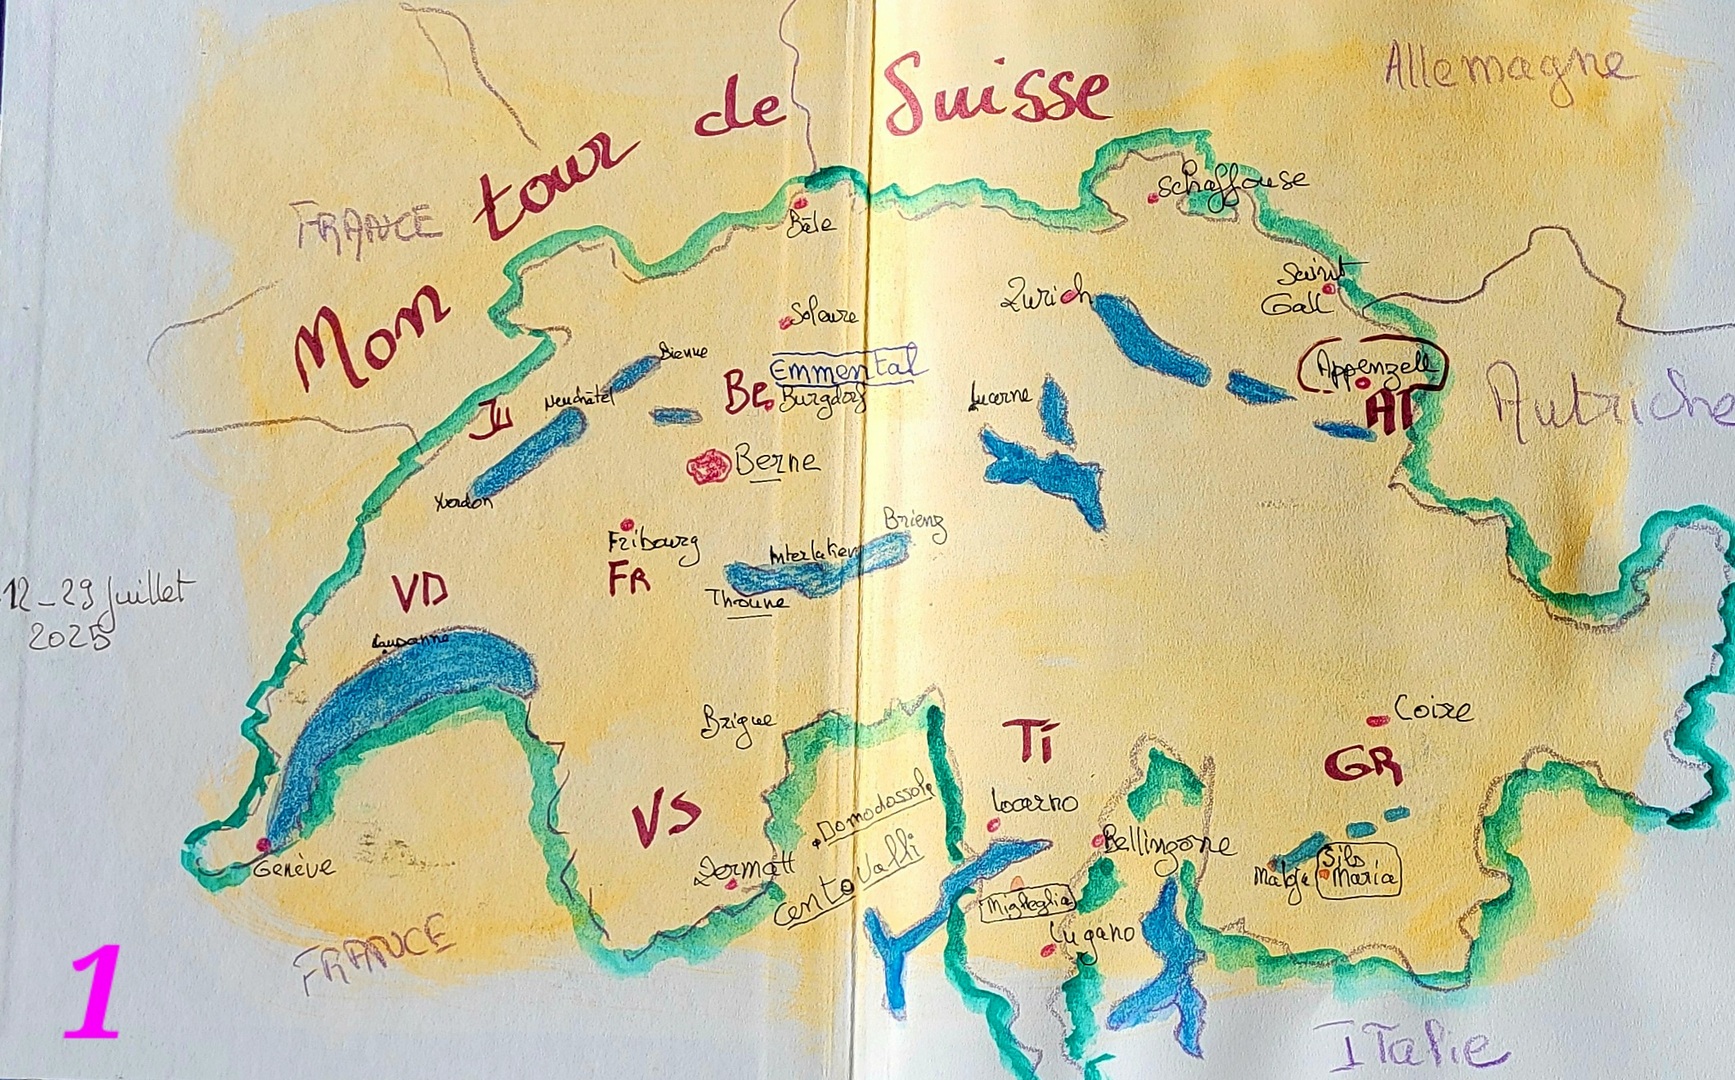 Mon tour de Suisse
Allemagne
FRANCE
Schaffouse
Bâle
Saint
Gall
Zurich
Soleure
Bienne
EMMENTAL
Appenzell
BE
Burgdorf
Neuchâtel
Lucerne
JU
AI
Autriche
Berne
Yverdon
Brienz
Fribourg
Interlaken
FR
VD
Thoune
12-29 juillet
2025
Lausanne
Brigue
Coire
Ti
GR
VS
Domodossola
Locarno
Bellinzone
Centovalli
Zermatt
Genève
Sils
Maria
Maloja
Miglieglia
Lugano
FRANCE
1
ITalie